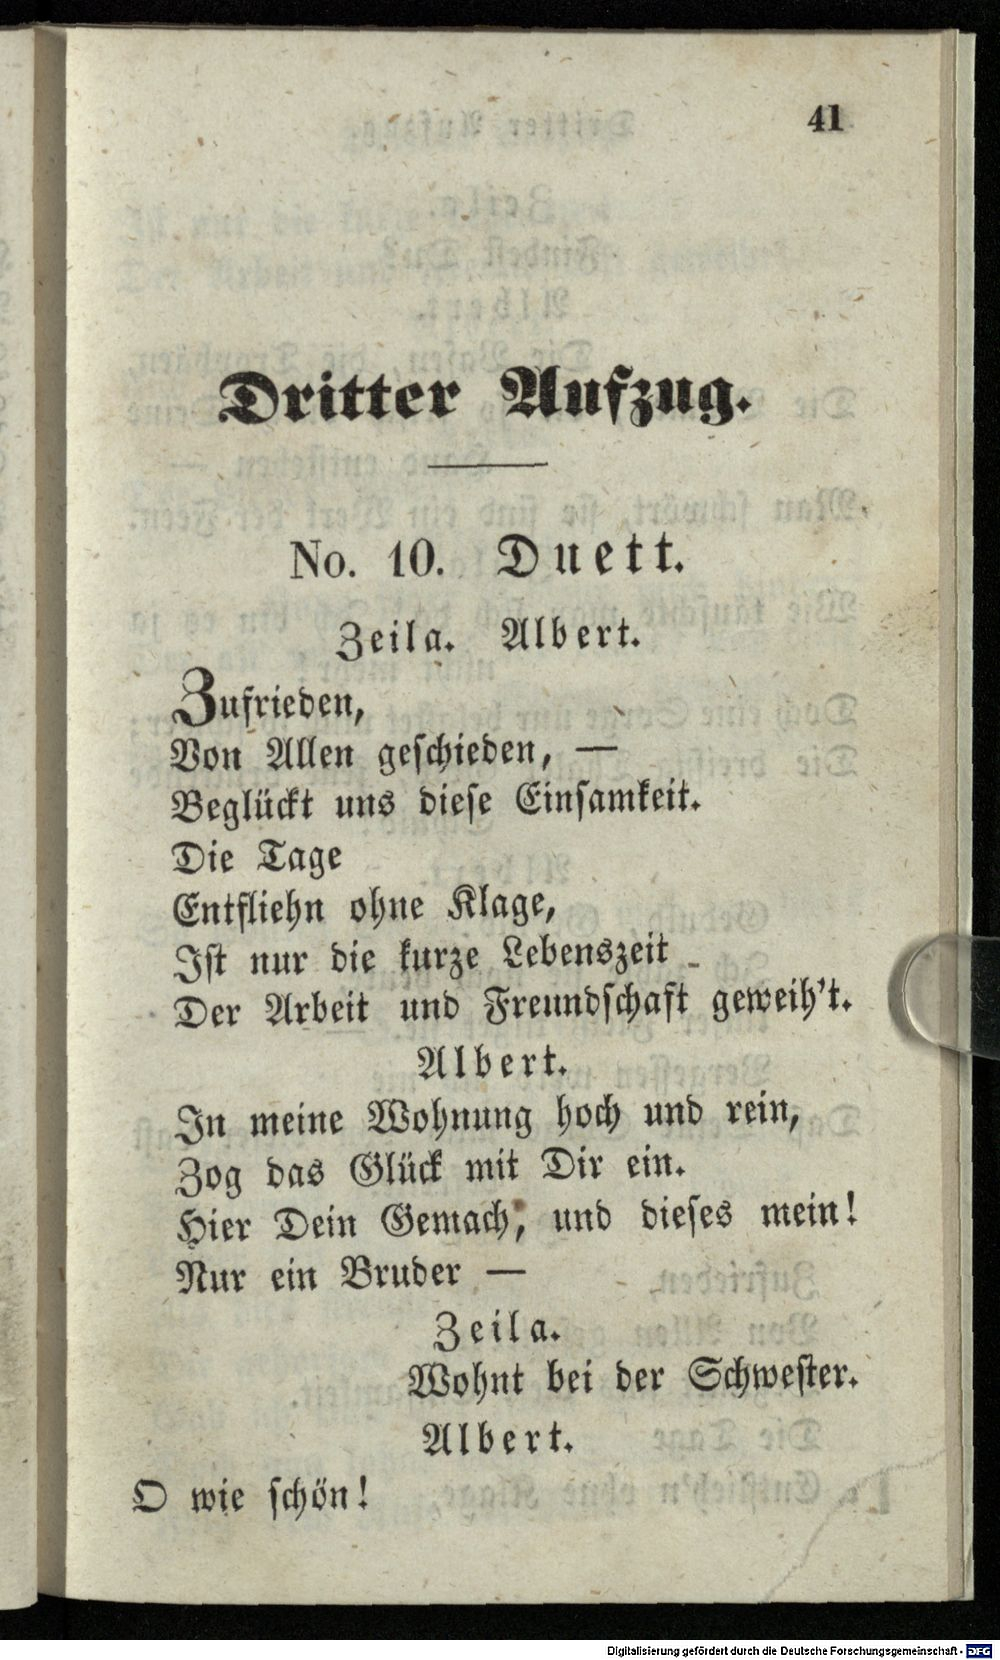 41
Dritter Aufzug.
No. 10. Duett.
Zeila. Albert.
Zufrieden,
Von Allen geschieden, —
Beglückt uns diese Einsamkeit.
Die Tage
Entfliehn ohne Klage,
Ist nur die kurze Lebenszeit
Der Arbeit und Freundschaft geweih't.
Albert.
In meine Wohnung hoch und rein,
Zog das Glück mit Dir ein.
Hier Dein Gemach, und dieses mein!
Nur ein Bruder —
Zeila.
Wohnt bei der Schwester.
Albert.
O wie schön!
Digitalisierung gefördert durch die Deutsche Forschungsgemeinschaft - DFG